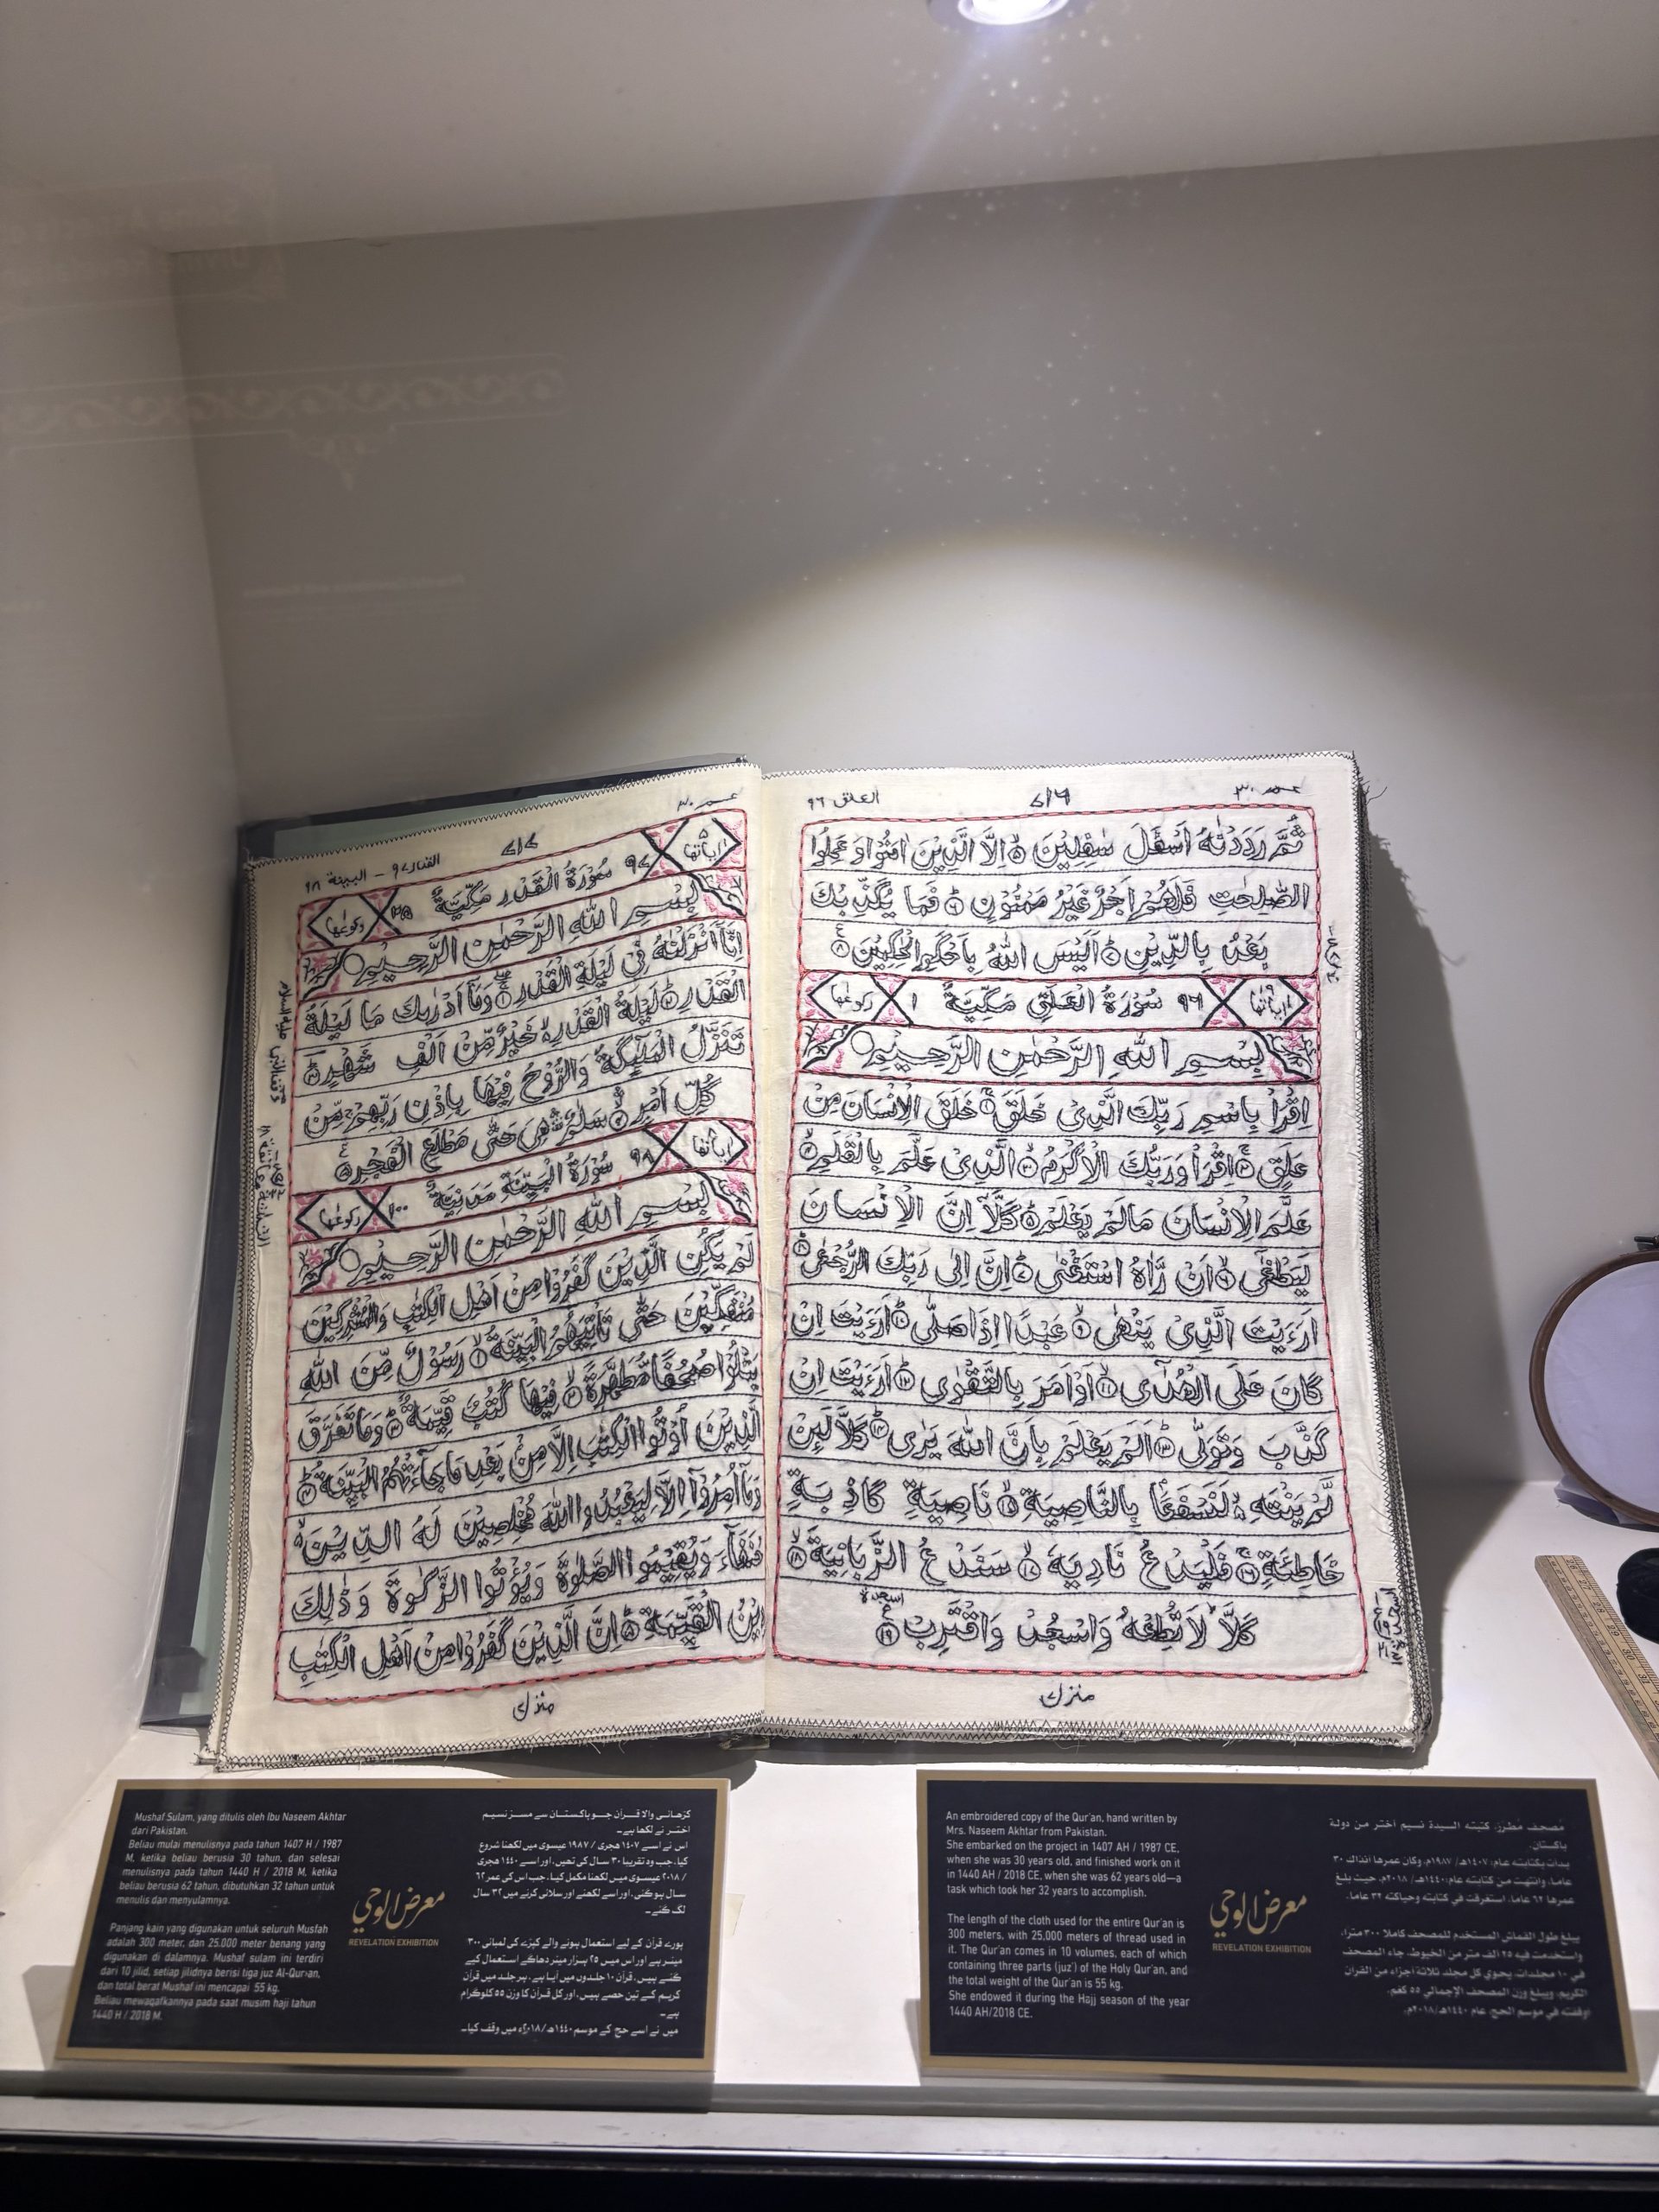 عم ٣٠
٧١٦
العلق ٩٦
ثُمَّ رَدَدْنٰهُ اَسْفَلَ سٰفِلِيْنَ ۵ اِلَّا الَّذِيْنَ اٰمَنُوْا وَ عَمِلُوا
الصّٰلِحٰتِ فَلَهُمْ اَجْرٌ غَيْرُ مَمْنُوْنٍ ۶ فَمَا يُكَذِّبُكَ
بَعْدُ بِالدِّيْنِ ۷ اَلَيْسَ اللّٰهُ بِاَحْكَمِ الْحٰكِمِيْنَ ۸
اٰيَاتُهَا ١٩ ٩٦ سُوْرَةُ الْعَلَقِ مَكِّيَّةٌ ١ رُكُوْعُهَا
بِسْمِ اللّٰهِ الرَّحْمٰنِ الرَّحِيْمِ
اِقْرَاْ بِاسْمِ رَبِّكَ الَّذِيْ خَلَقَ ۱ خَلَقَ الْاِنْسَانَ مِنْ
عَلَقٍ ۲ اِقْرَاْ وَرَبُّكَ الْاَكْرَمُ ۳ الَّذِيْ عَلَّمَ بِالْقَلَمِ ۴
عَلَّمَ الْاِنْسَانَ مَالَمْ يَعْلَمْ ۵ كَلَّاۤ اِنَّ الْاِنْسَانَ
لَيَطْغٰٓى ۶ اَنْ رَّاٰهُ اسْتَغْنٰى ۷ اِنَّ اِلٰى رَبِّكَ الرُّجْعٰى ۸
اَرَءَيْتَ الَّذِيْ يَنْهٰى ۹ عَبْدًا اِذَا صَلّٰى ۱۰ اَرَءَيْتَ اِنْ
كَانَ عَلَى الْهُدٰٓى ۱۱ اَوْ اَمَرَ بِالتَّقْوٰى ۱۲ اَرَءَيْتَ اِنْ
كَذَّبَ وَتَوَلّٰى ۱۳ اَلَمْ يَعْلَمْ بِاَنَّ اللّٰهَ يَرٰى ۱۴ كَلَّا لَئِنْ
لَّمْ يَنْتَهِ لَنَسْفَعًا بِالنَّاصِيَةِ ۱۵ نَاصِيَةٍ كَاذِبَةٍ
خَاطِئَةٍ ۱۶ فَلْيَدْعُ نَادِيَهٗ ۱۷ سَنَدْعُ الزَّبَانِيَةَ ۱۸
كَلَّا لَا تُطِعْهُ وَاسْجُدْ وَاقْتَرِبْ ۱۹
السجدة
منزل ٧
عم ٣٠
٧١٧
القدر ٩٧ – البينة ٩٨
اٰيَاتُهَا ٥ ٩٧ سُوْرَةُ الْقَدْرِ مَكِّيَّةٌ ٢٥ رُكُوْعُهَا
بِسْمِ اللّٰهِ الرَّحْمٰنِ الرَّحِيْمِ
اِنَّاۤ اَنْزَلْنٰهُ فِيْ لَيْلَةِ الْقَدْرِ ۱ وَمَاۤ اَدْرٰىكَ مَا لَيْلَةُ
الْقَدْرِ ۲ لَيْلَةُ الْقَدْرِ خَيْرٌ مِّنْ اَلْفِ شَهْرٍ ۳
تَنَزَّلُ الْمَلٰٓئِكَةُ وَالرُّوْحُ فِيْهَا بِاِذْنِ رَبِّهِمْ مِّنْ
كُلِّ اَمْرٍ ۴ سَلٰمٌ هِيَ حَتّٰى مَطْلَعِ الْفَجْرِ ۵
اٰيَاتُهَا ٩٨ سُوْرَةُ الْبَيِّنَةِ مَدَنِيَّةٌ ١٠٠ رُكُوْعُهَا
بِسْمِ اللّٰهِ الرَّحْمٰنِ الرَّحِيْمِ
لَمْ يَكُنِ الَّذِيْنَ كَفَرُوْا مِنْ اَهْلِ الْكِتٰبِ وَالْمُشْرِكِيْنَ
مُنْفَكِّيْنَ حَتّٰى تَاْتِيَهُمُ الْبَيِّنَةُ ۱ رَسُوْلٌ مِّنَ اللّٰهِ
يَتْلُوْا صُحُفًا مُّطَهَّرَةً ۲ فِيْهَا كُتُبٌ قَيِّمَةٌ ۳ وَمَا تَفَرَّقَ
الَّذِيْنَ اُوْتُوا الْكِتٰبَ اِلَّا مِنْ بَعْدِ مَا جَآءَتْهُمُ الْبَيِّنَةُ ۴
وَمَاۤ اُمِرُوْۤا اِلَّا لِيَعْبُدُوا اللّٰهَ مُخْلِصِيْنَ لَهُ الدِّيْنَ
حُنَفَآءَ وَيُقِيْمُوا الصَّلٰوةَ وَيُؤْتُوا الزَّكٰوةَ وَذٰلِكَ
دِيْنُ الْقَيِّمَةِ ۵ اِنَّ الَّذِيْنَ كَفَرُوْا مِنْ اَهْلِ الْكِتٰبِ
منزل ٧
Mushaf Sulam, yang ditulis oleh Ibu Naseem Akhtar
dari Pakistan.
Beliau mulai menulisnya pada tahun 1407 H / 1987
M, ketika beliau berusia 30 tahun, dan selesai
menulisnya pada tahun 1440 H / 2018 M, ketika
beliau berusia 62 tahun, dibutuhkan 32 tahun untuk
menulis dan menyulamnya.
Panjang kain yang digunakan untuk seluruh Musfah
adalah 300 meter, dan 25.000 meter benang yang
digunakan di dalamnya. Mushaf sulam ini terdiri
dari 10 jilid, setiap jilidnya berisi tiga juz Al-Qur›an,
dan total berat Mushaf ini mencapai 55 kg.
Beliau mewaqafkannya pada saat musim haji tahun
1440 H / 2018 M.
معرض الوحي
REVELATION EXHIBITION
کڑھائی والا قرآن جو پاکستان سے مسز نسیم
اختر نے لکھا ہے۔
اس نے اسے ١٤٠٧ ہجری / ١٩٨٧ عیسوی میں لکھنا شروع
کیا، جب وہ تقریبا ٣٠ سال کی تھیں، اور اسے ١٤٤٠ ہجری
/ ٢٠١٨ عیسوی میں لکھنا مکمل کیا، جب اس کی عمر ٦٢
سال ہو گئی، اور اسے لکھنے اور سلائی کرنے میں ٣٢ سال
لگ گئے۔
پورے قرآن کے لیے استعمال ہونے والے کپڑے کی لمبائی ٣٠٠
میٹر ہے اور اس میں ٢٥ ہزار میٹر دھاگے استعمال کیے
گئے ہیں۔ قرآن ١٠ جلدوں میں آیا ہے، ہر جلد میں قرآن
کریم کے تین حصے ہیں، اور کل قرآن کا وزن ٥٥ کلوگرام
ہے۔
میں نے اسے حج کے موسم ١٤٤٠ھ/٢٠١٨ء میں وقف کیا۔
An embroidered copy of the Qur'an, hand written by
Mrs. Naseem Akhtar from Pakistan.
She embarked on the project in 1407 AH / 1987 CE,
when she was 30 years old, and finished work on it
in 1440 AH / 2018 CE, when she was 62 years old—a
task which took her 32 years to accomplish.
The length of the cloth used for the entire Qur'an is
300 meters, with 25,000 meters of thread used in
it. The Qur'an comes in 10 volumes, each of which
containing three parts (juz') of the Holy Qur'an, and
the total weight of the Qur'an is 55 kg.
She endowed it during the Hajj season of the year
1440 AH/2018 CE.
معرض الوحي
REVELATION EXHIBITION
مصحف مطرز، كتبته السيدة نسيم أختر من دولة
باكستان.
بدأت بكتابته عام: ١٤٠٧هـ/ ١٩٨٧م، وكان عمرها آنذاك ٣٠
عاما، وانتهت من كتابته عام: ١٤٤٠هـ/ ٢٠١٨م، حيث بلغ
عمرها ٦٢ عاما، استغرقت في كتابته وحياكته ٣٢ عاما.
يبلغ طول القماش المستخدم للمصحف كاملا ٣٠٠ مترا،
واستخدمت فيه ٢٥ ألف متر من الخيوط، جاء المصحف
في ١٠ مجلدات، يحوي كل مجلد ثلاثة أجزاء من القرآن
الكريم، ويبلغ وزن المصحف الإجمالي ٥٥ كغم.
أوقفته في موسم الحج، عام ١٤٤٠هـ/٢٠١٨م.